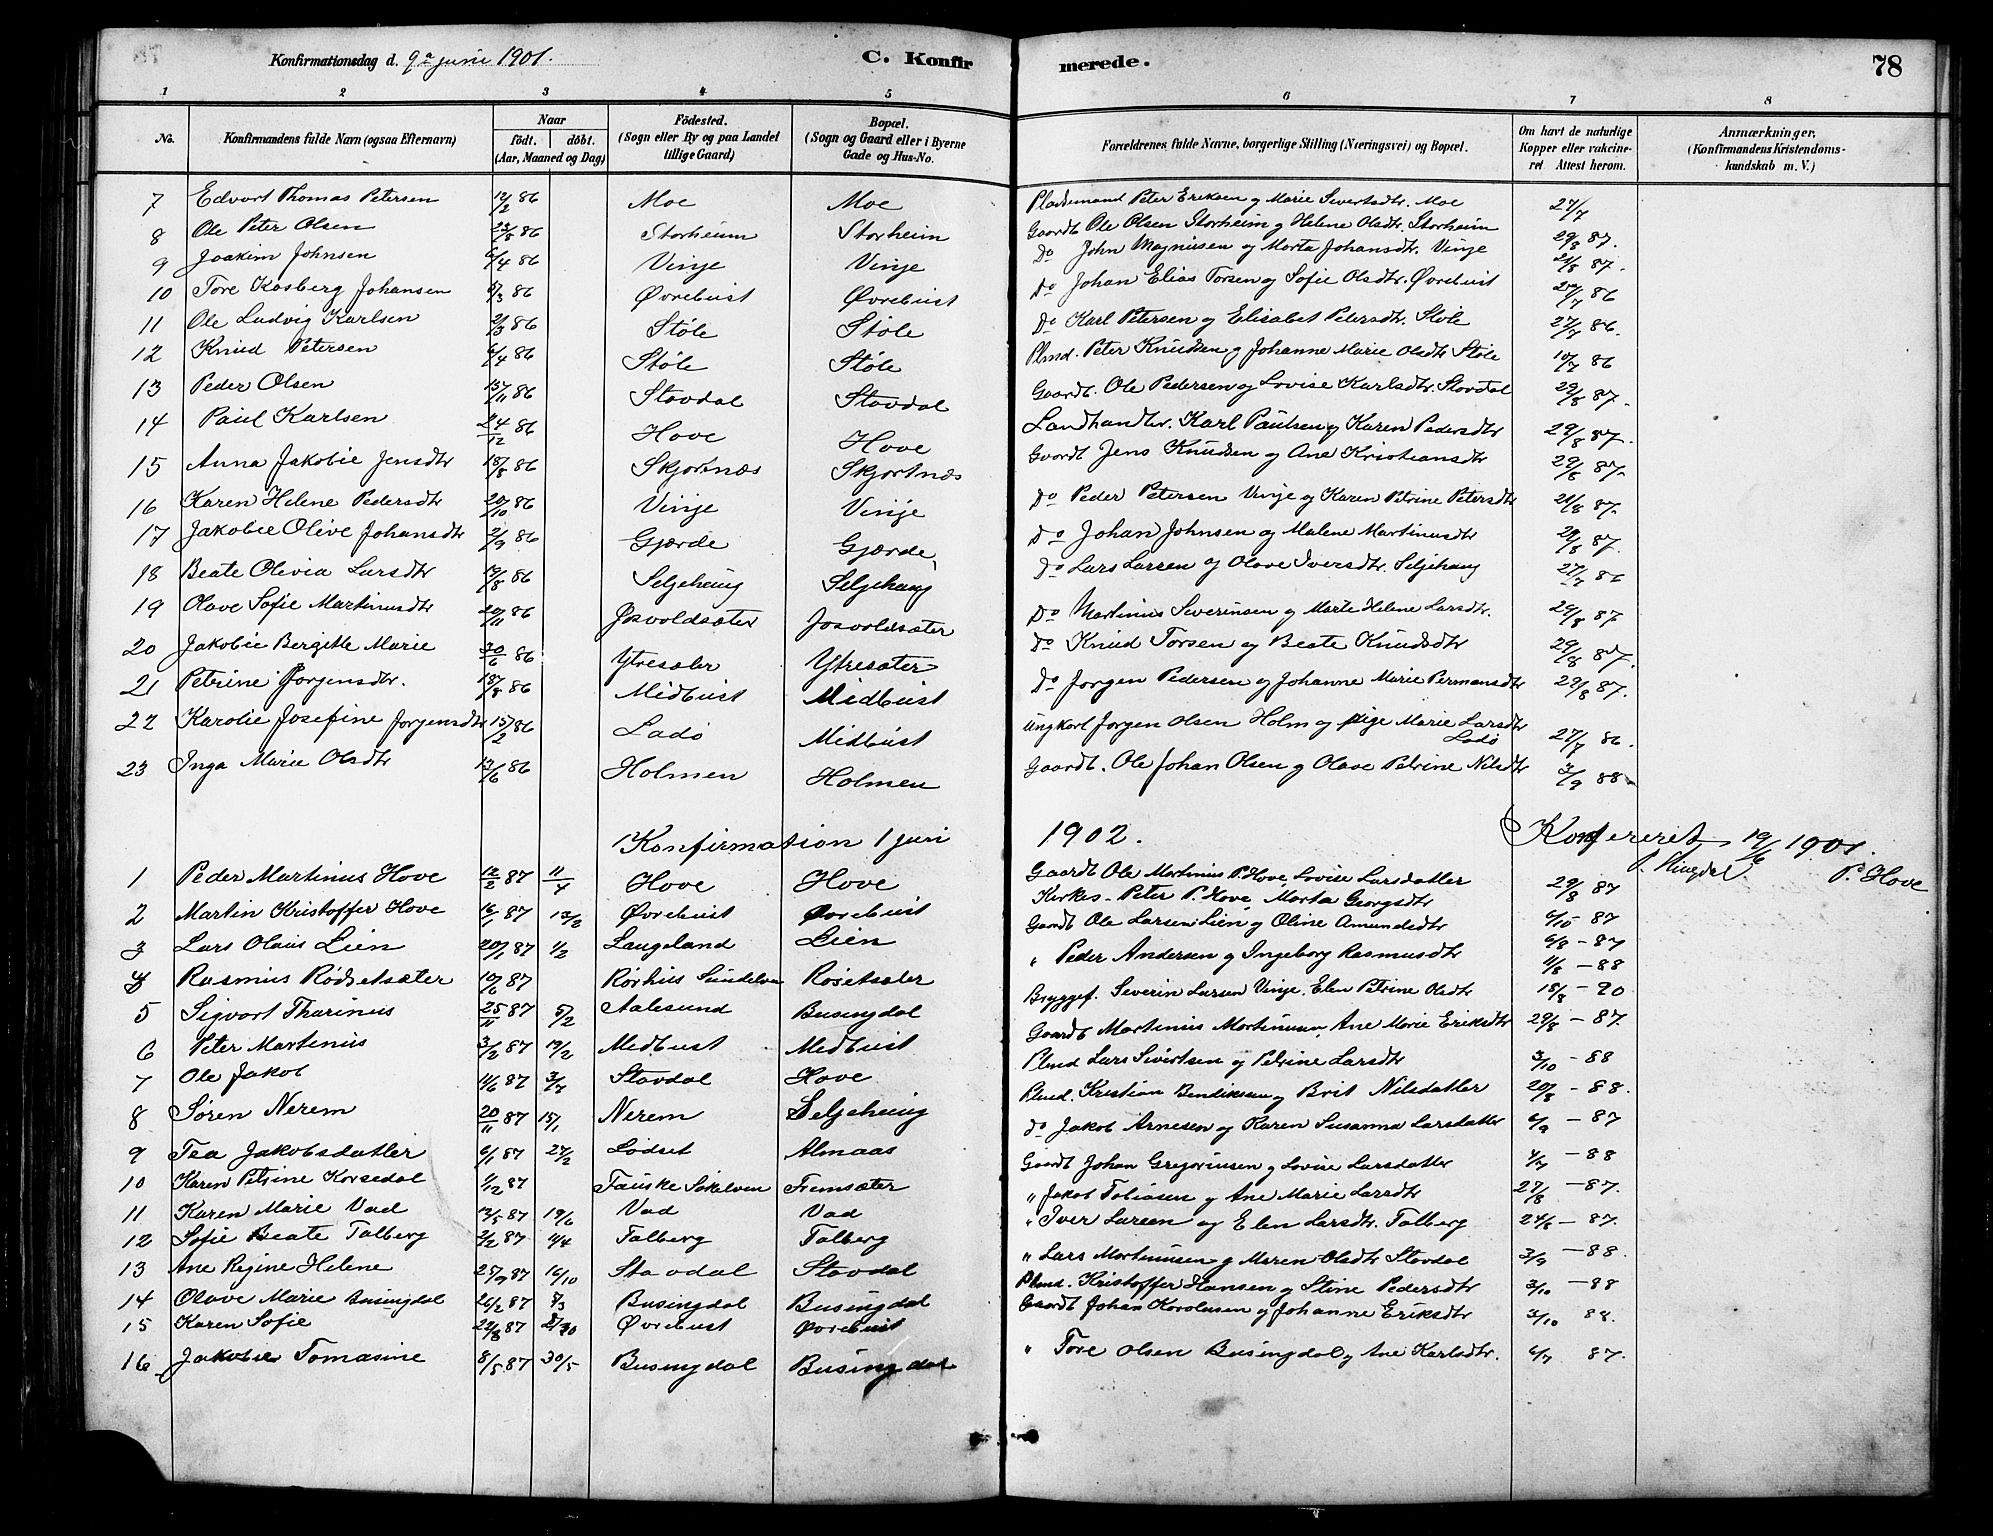 Konfirmationsdag d. 9de juni 1901. C. Konfirmerede. 78
1 2 3 4 5 6 7 8
No. Konfirmandens fulde Navn (ogsaa Efternavn) Naar födt. döbt. (Aar, Maaned og Dag) Födested. (Sogn eller By og paa Landet tillige Gaard) Bopæl. (Sogn og Gaard eller i Byerne Gade og Hus-No. Forældrenes fulde Navne, borgerlige Stilling (Næringsvei) og Bopæl. Om havt de naturlige Kopper eller vakcineret Attest herom. Anmærkninger, (Konfirmandens Kristendomskundskab m. V.)
7 Edvart Thomas Petersen 12/2 86 Moe Moe Pladsemand Peter Eriksen og Marie Sivertsdtr. Moe 27/7
8 Ole Peter Olsen 23/8 86 Storheim Storheim Gaardt Ole Olsen Storheim og Helene Olsdtr. Storheim 29/8 87.
9 Joakim Johnsen 6/4 86 Vinje Vinje Do John Magnusen og Marta Johansdtr. Vinje 21/8 87.
10 Tore Kasberg Johansen 5/3 86 Øvrebust Øvrebust Do Johan Elias Torsen og Sofie Olsdtr. Øvrebust 27/7 86
11 Ole Ludvig Karlsen 2/3 86 Støle Støle Do Karl Petersen og Elisabet Petersdtr. Støle 27/7 86.
12 Knud Petersen 6/4 86 Støle Støle Plmd. Peter Knudsen og Johanne Marie Olsdtr Støle 10/7 86
13 Peder Olsen 13/11 86 Stavdal Stavdal Gaardt. Ole Pedersen og Lovise Karlsdtr Stavdal 29/8 87.
14 Paul Karlsen 24/12 86 Hove Hove Landhandler. Karl Paulsen og Karen Pedersdtr 29/8 87.
15 Anna Jakobie Jensdtr 18/8 86 Skjortnæs Skjortnæs Gaardt Jens Knudsen og Ane Kristiansdtr 29/8 87.
16 Karen Helene Pedersdtr 20/10 86 Vinje Vinje Do Peder Petersen Vinje og Karen Petrine Petersdtr 21/8 87.
17 Jakobie Olive Johansdtr 2/9 86 Gjærde Gjærde Do Johan Johnsen og Malene Martinusdtr 29/8 87.
18 Beate Olivia Larsdtr 13/8 86 Seljehaug Seljehaug Do Lars Larsen og Olave Iversdtr. Seljehaug 27/7 86
19 Olave Sofie Martinusdtr 20/11 86 Josvoldsæter Josvoldsæter Do Martinus Severinsen og Marte Helene Larsdtr. 29/8 87
20 Jakobie Bergitte Marie 30/6 86 Ytresæter Ytresæter Do Knud Torsen og Beate Knudsdtr 29/8 87.
21 Petrine Jørgensdtr. 18/8 86 Midbust Midbust Do Jorgen Pedersen og Johanne Marie Permansdtr 29/8 87.
22 Karolie Josefine Jorgensdtr 15/2 86 Ladö Midbust Ungkarl Jorgen Olsen Holm og pige Marie Larsdtr Ladö 27/7 86.
23 Inga Marie Olsdtr 13/6 86 Holmen Holmen Gaardt. Ole Johan Olsen og Olave Petrine Nilsdtr 3/9 88
Konfirmation 1 juni 1902. Konfereret 19/6 1901.
P. Hove
1 Peder Martinus Hove 12/2 87 11/4 Hove Hove Gaardt Ole Martinus P. Hove, Lovise Larsdatter 29/8 87
2 Martin Kristoffer Hove 16/1 87 13/2 Øvrebust Øvrebust Kirkes. Peter P. Hove, Marta Georgsdtr 6/10 - 87
3 Lars Olaus Lien 20/1 87 1/2 Langeland Lien Gaardt Ole Larsen Lien og Oline Amundsdtr 6/8 - 87
4 Rasmus Rødsetsæter 10/6 87 Rørhus Sundelven Røsetsæter " Peder Andersen og Ingeborg Rasmusdtr 11/8 - 88
5 Sigvart Tharinus 25/11 87 5/2 Aalesund Busingdal Bryggef. Severin Larsen Vinje. Elen Petrine Olsdtr 18/8 - 90
6 Peter Martinus 3/2 87 19/2 Medbust Medbust Gaardt Martinus Martinusen, Ane Marie Eriksdtr 29/8 - 87.
7 Ole Jakob 11/6 87 3/7 Stavdal Hove Plmd Lars Sivertsen og Petrine Larsdtr 3/10 - 88
8 Søren Nerem 20/11 87 15/1 Nerem Seljehaug Plmd. Kristian Bendiksen og Brit Nilsdatter 20/8 - 88.
9 Tea Jakobsdatter 6/1 87 27/2 Lødset Almaas do Jakob Arnesen og Karen Susanna Larsdatter 6/9 - 87
10 Karen Petrine Korsedal 1/12 87 Fauske Søkelven Fremsæter Gaardt Johan Gregoriusen og Lovise Larsdatter 4/7 - 88
11 Karen Marie Vad 13/5 87 19/6 Vad Vad " Jakob Tobiasen og Ane Marie Larsdtr 27/8 - 87.
12 Sofie Beate Talberg 2/2 87 11/4 Talberg Talberg " Iver Larsen og Elen Larsdtr. Talberg 24/6 - 87.
13 Ane Regine Helene 25/9 87 16/10 Stavdal Stavdal " Lars Martinusen og Maren Olsdtr Stavdal 3/9 - 88.
14 Olave Marie Busingdal 26/2 87 8/3 Busingdal Busingdal Plmd. Kristoffer Hansen og Stine Pedersdtr 3/10 - 88
15 Karen Sofie 22/8 87 Øvrebust Øvrebust Gaardt Johan Karolusen og Johanne Eriksdtr 3/10 88.
16 Jakobie Tomasine 8/5 87 30/5 Busingdal Busingdal " Tore Olsen Busingdal og Ane Karlsdtr. 6/7 87.